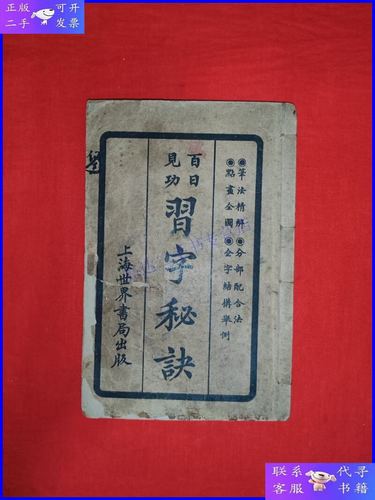 正版 可开
二手 发票
◉筆法精解◉分部配合法
◉點畫全圖◉全字結構舉例
百日
見功
習字秘訣
上海世界書局出版
联系 代寻
客服 书籍